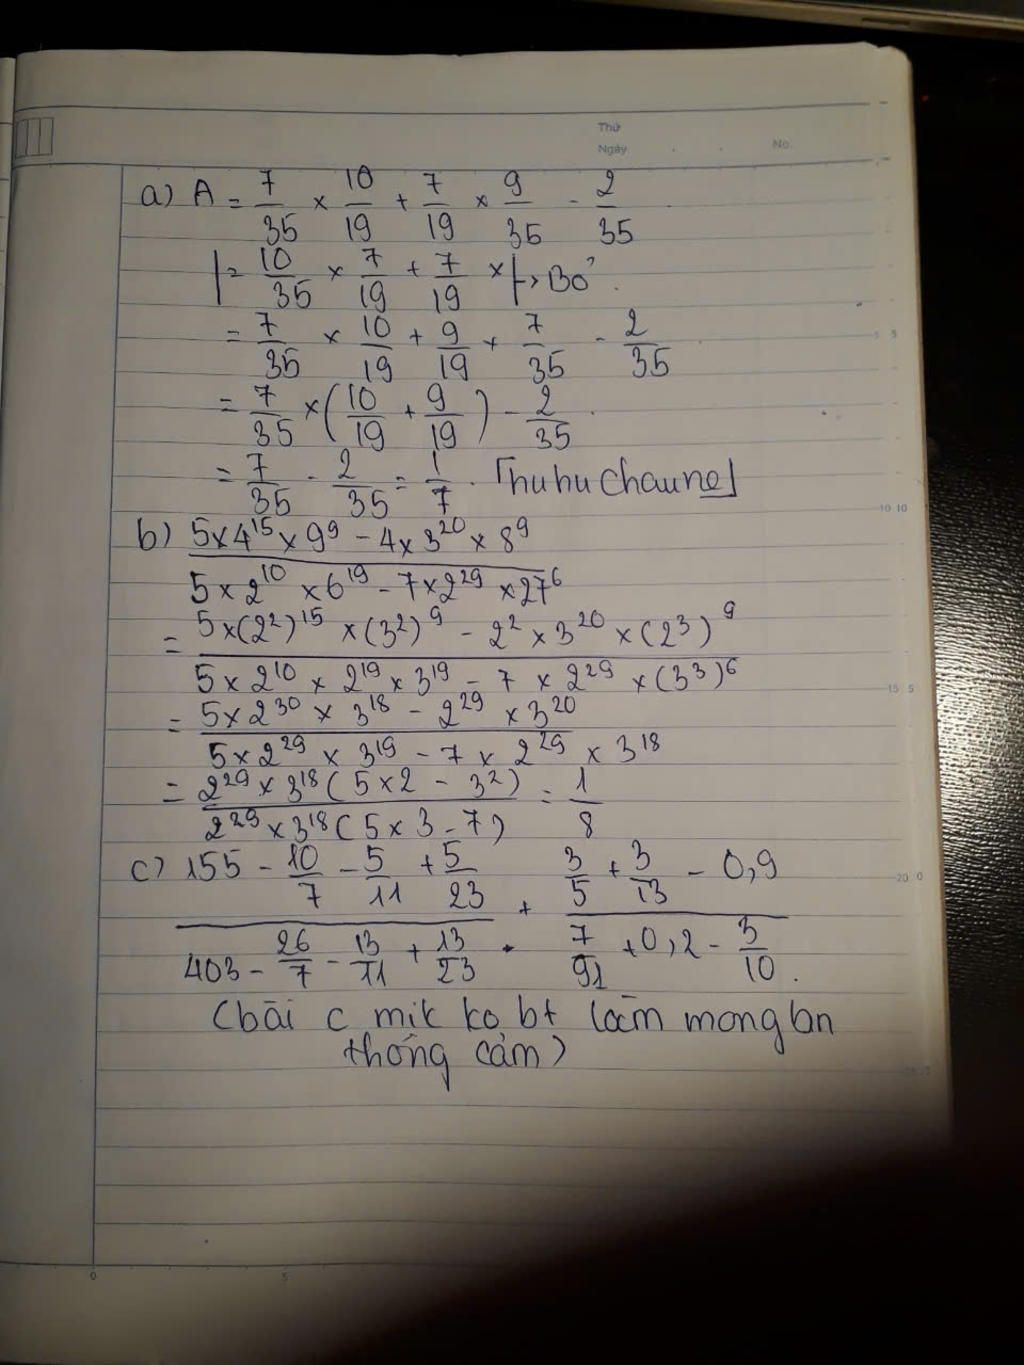 Thứ
Ngày . . No.
a) A = 7/35 × 10/19 + 7/19 × 9/35 - 2/35
= 10/35 × 7/19 + 7/19 × → Bỏ
= 7/35 × 10/19 + 9/19 + 7/35 - 2/35
= 7/35 × (10/19 + 9/19) - 2/35
= 7/35 - 2/35 = 1/7 .
b) 5×4¹⁵×9⁹ - 4×3²⁰×8⁹
5×2¹⁰×6¹⁹ - 7×2²⁹×27⁶
= 5×(2²)¹⁵×(3²)⁹ - 2²×3²⁰×(2³)⁹
5×2¹⁰×2¹⁹×3¹⁹ - 7×2²⁹×(3³)⁶
= 5×2³⁰×3¹⁸ - 2²⁹×3²⁰
5×2²⁹×3¹⁹ - 7×2²⁹×3¹⁸
= 2²⁹×3¹⁸(5×2 - 3²) = 1
2²⁹×3¹⁸(5×3 - 7) 8
c) 155 - 10/7 - 5/11 + 5/23 + 3/5 + 3/13 - 0,9
403 - 26/7 - 13/11 + 13/23 7/91 + 0,2 - 3/10 .
(bài c mik ko bt làm mong bn
thông cảm)
10 10
15 5
20 0
0 5